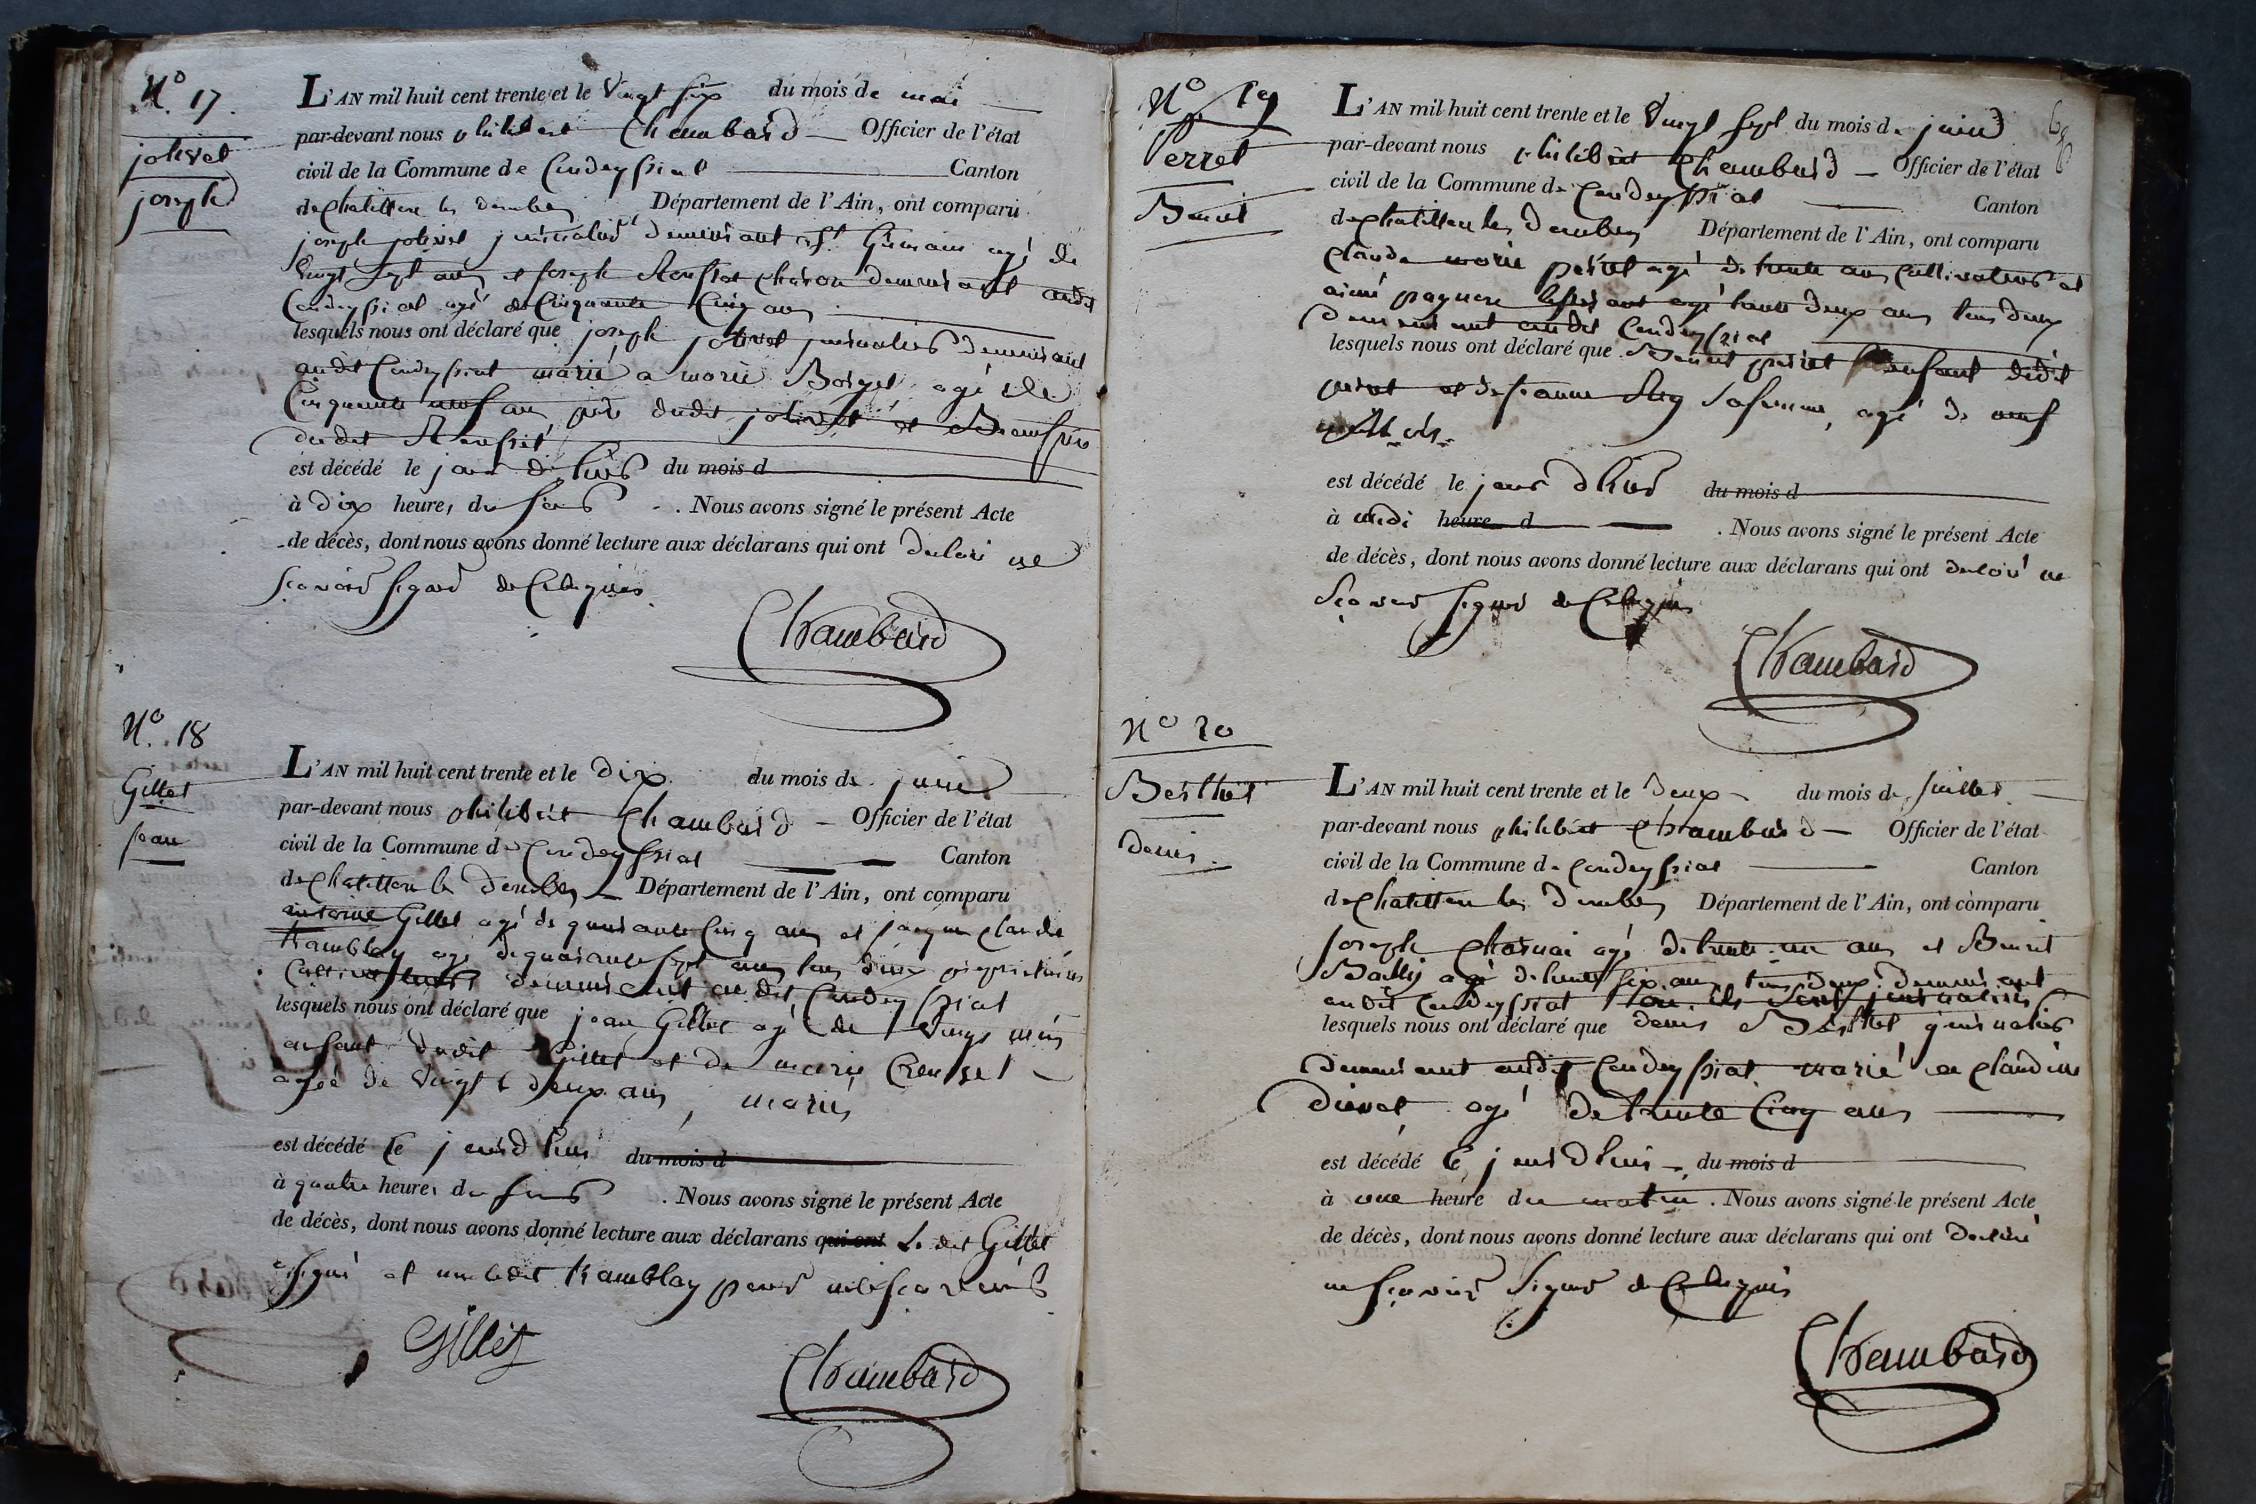 N.º 17
jolivet
joseph
L'AN mil huit cent trente et le Vingt six du mois de mai
par-devant nous philibert Chambard Officier de l'état
civil de la Commune de Condeyssiat Canton
de chatillon les dombes Département de l'Ain, ont comparu
joseph jolivet journalier demeurant a St Germain agé de
vingt sept ans et joseph charon demeurant audit
Condeyssiat agé de Cinquante Cinq ans
lesquels nous ont déclaré que joseph jolivet journalier demeurant
audit Condeyssiat marié a marie Borget agé de
Cinquante neuf ans père dudit jolivet et Beaufrère
dudit
est décédé le jour d'hier du mois d
à dix heures du soir . Nous avons signé le présent Acte
de décès, dont nous avons donné lecture aux déclarans qui ont declaré ne
sçavoir signer de Ce requis
Chambard
N.º 18
Gillet
jean
L'AN mil huit cent trente et le dix du mois de juin
par-devant nous philibert Chambard Officier de l'état
civil de la Commune de Condeyssiat Canton
de chatillon les dombes Département de l'Ain, ont comparu
antoine Gillet agé de quarante Cinq ans et jacque claude
tramblay agé de quarante sept ans tous deux propriétaires
Cultivateurs demeurant audit Condeyssiat
lesquels nous ont déclaré que jean Gillet agé de Vingt
enfant dudit Gillet et de marie Creuset
agée de Vingt deux ans, mariés
est décédé le jourd'hui du mois d
à quatre heures du soir . Nous avons signé le présent Acte
de décès, dont nous avons donné lecture aux déclarans qui ont Le dit Gillet
a signé et non ledit tramblay pour ne le sçavoir
Gillet
Chambard
Nº 19
Perret
Benoit
L'AN mil huit cent trente et le Vingt sept du mois de juin
par-devant nous philibert Chambard Officier de l'état
civil de la Commune de Condeyssiat Canton
de chatillon les dombes Département de l'Ain, ont comparu
claude marie perret agé de trente ans Cultivateur et
aimé agé trente deux ans tous deux
demeurant audit Condeyssiat
lesquels nous ont déclaré que Benoit perret enfant dudit
perret et de jeanne Rey sa femme, agé de neuf
mois
est décédé le jour d'hier du mois d
à midi heure d . Nous avons signé le présent Acte
de décès, dont nous avons donné lecture aux déclarans qui ont declaré ne
Sçavoir signer de Ce requis
Chambard
Nº 20
Berthet
denis
L'AN mil huit cent trente et le deux du mois de juillet
par-devant nous philibert Chambard Officier de l'état
civil de la Commune de Condeyssiat Canton
de chatillon les dombes Département de l'Ain, ont comparu
joseph agé de trente un ans et Benoit
Bailly agé de trente six ans tous deux demeurant
audit Condeyssiat où ils sont journaliers
lesquels nous ont déclaré que denis Berthet journalier
demeurant audit Condeyssiat marié a claudine
agé de trente Cinq ans
est décédé le jourd'hui du mois d
à une heure du matin . Nous avons signé le présent Acte
de décès, dont nous avons donné lecture aux déclarans qui ont declaré
ne sçavoir signer de Ce requis
Chambard